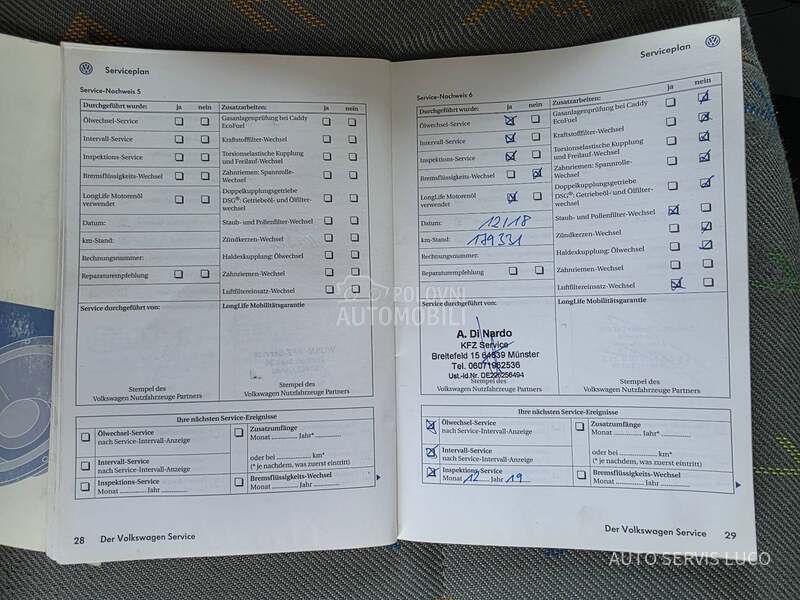 Serviceplan
Service-Nachweis 5
Durchgeführt wurde: ja nein
Zusatzarbeiten: ja nein
Ölwechsel-Service
Gasanlagenprüfung bei Caddy
EcoFuel
Intervall-Service
Kraftstofffilter-Wechsel
Inspektions-Service
Torsionselastische Kupplung
und Freilauf-Wechsel
Bremsflüssigkeits-Wechsel
Zahnriemen: Spannrolle-
Wechsel
LongLife Motorenöl
verwendet
Doppelkupplungsgetriebe
DSG®: Getriebeöl- und Ölfilter-
wechsel
Datum:
Staub- und Pollenfilter-Wechsel
km-Stand:
Zündkerzen-Wechsel
Rechnungsnummer:
Haldexkupplung: Ölwechsel
Reparaturempfehlung
Zahnriemen-Wechsel
Luftfiltereinsatz-Wechsel
Service durchgeführt von:
LongLife Mobilitätsgarantie
Stempel des
Volkswagen Nutzfahrzeuge Partners
Stempel des
Volkswagen Nutzfahrzeuge Partners
Ihre nächsten Service-Ereignisse
Ölwechsel-Service
nach Service-Intervall-Anzeige
Zusatzumfänge
Monat .............. Jahr* ..............
Intervall-Service
nach Service-Intervall-Anzeige
oder bei .................. km*
(* je nachdem, was zuerst eintritt)
Inspektions-Service
Monat .......... Jahr ..........
Bremsflüssigkeits-Wechsel
Monat .............. Jahr ..............
28 Der Volkswagen Service
Serviceplan
Service-Nachweis 6
Durchgeführt wurde: ja nein
Zusatzarbeiten: ja nein
Ölwechsel-Service
Gasanlagenprüfung bei Caddy
EcoFuel
Intervall-Service
Kraftstofffilter-Wechsel
Inspektions-Service
Torsionselastische Kupplung
und Freilauf-Wechsel
Bremsflüssigkeits-Wechsel
Zahnriemen: Spannrolle-
Wechsel
LongLife Motorenöl
verwendet
Doppelkupplungsgetriebe
DSG®: Getriebeöl- und Ölfilter-
wechsel
Datum: 12/18
Staub- und Pollenfilter-Wechsel
km-Stand: 179331
Zündkerzen-Wechsel
Rechnungsnummer:
Haldexkupplung: Ölwechsel
Reparaturempfehlung
Zahnriemen-Wechsel
Luftfiltereinsatz-Wechsel
Service durchgeführt von:
LongLife Mobilitätsgarantie
A. Di Nardo
KFZ Service
Breitefeld 15 64839 Münster
Tel. 06071962536
Ust.-Id.Nr. DE226256494
Stempel des
Volkswagen Nutzfahrzeuge Partners
Stempel des
Volkswagen Nutzfahrzeuge Partners
Ihre nächsten Service-Ereignisse
Ölwechsel-Service
nach Service-Intervall-Anzeige
Zusatzumfänge
Monat .............. Jahr* ..............
Intervall-Service
nach Service-Intervall-Anzeige
oder bei .................. km*
(* je nachdem, was zuerst eintritt)
Inspektions-Service
Monat 12 Jahr 19
Bremsflüssigkeits-Wechsel
Monat .............. Jahr ..............
Der Volkswagen Service 29
POLOVNI
AUTOMOBILI
AUTO SERVIS LUCO